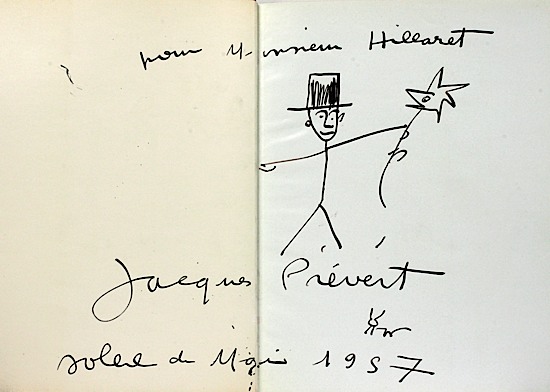 pour Monsieur Hillaret
Jacques Prévert
soleil de Mai 1957